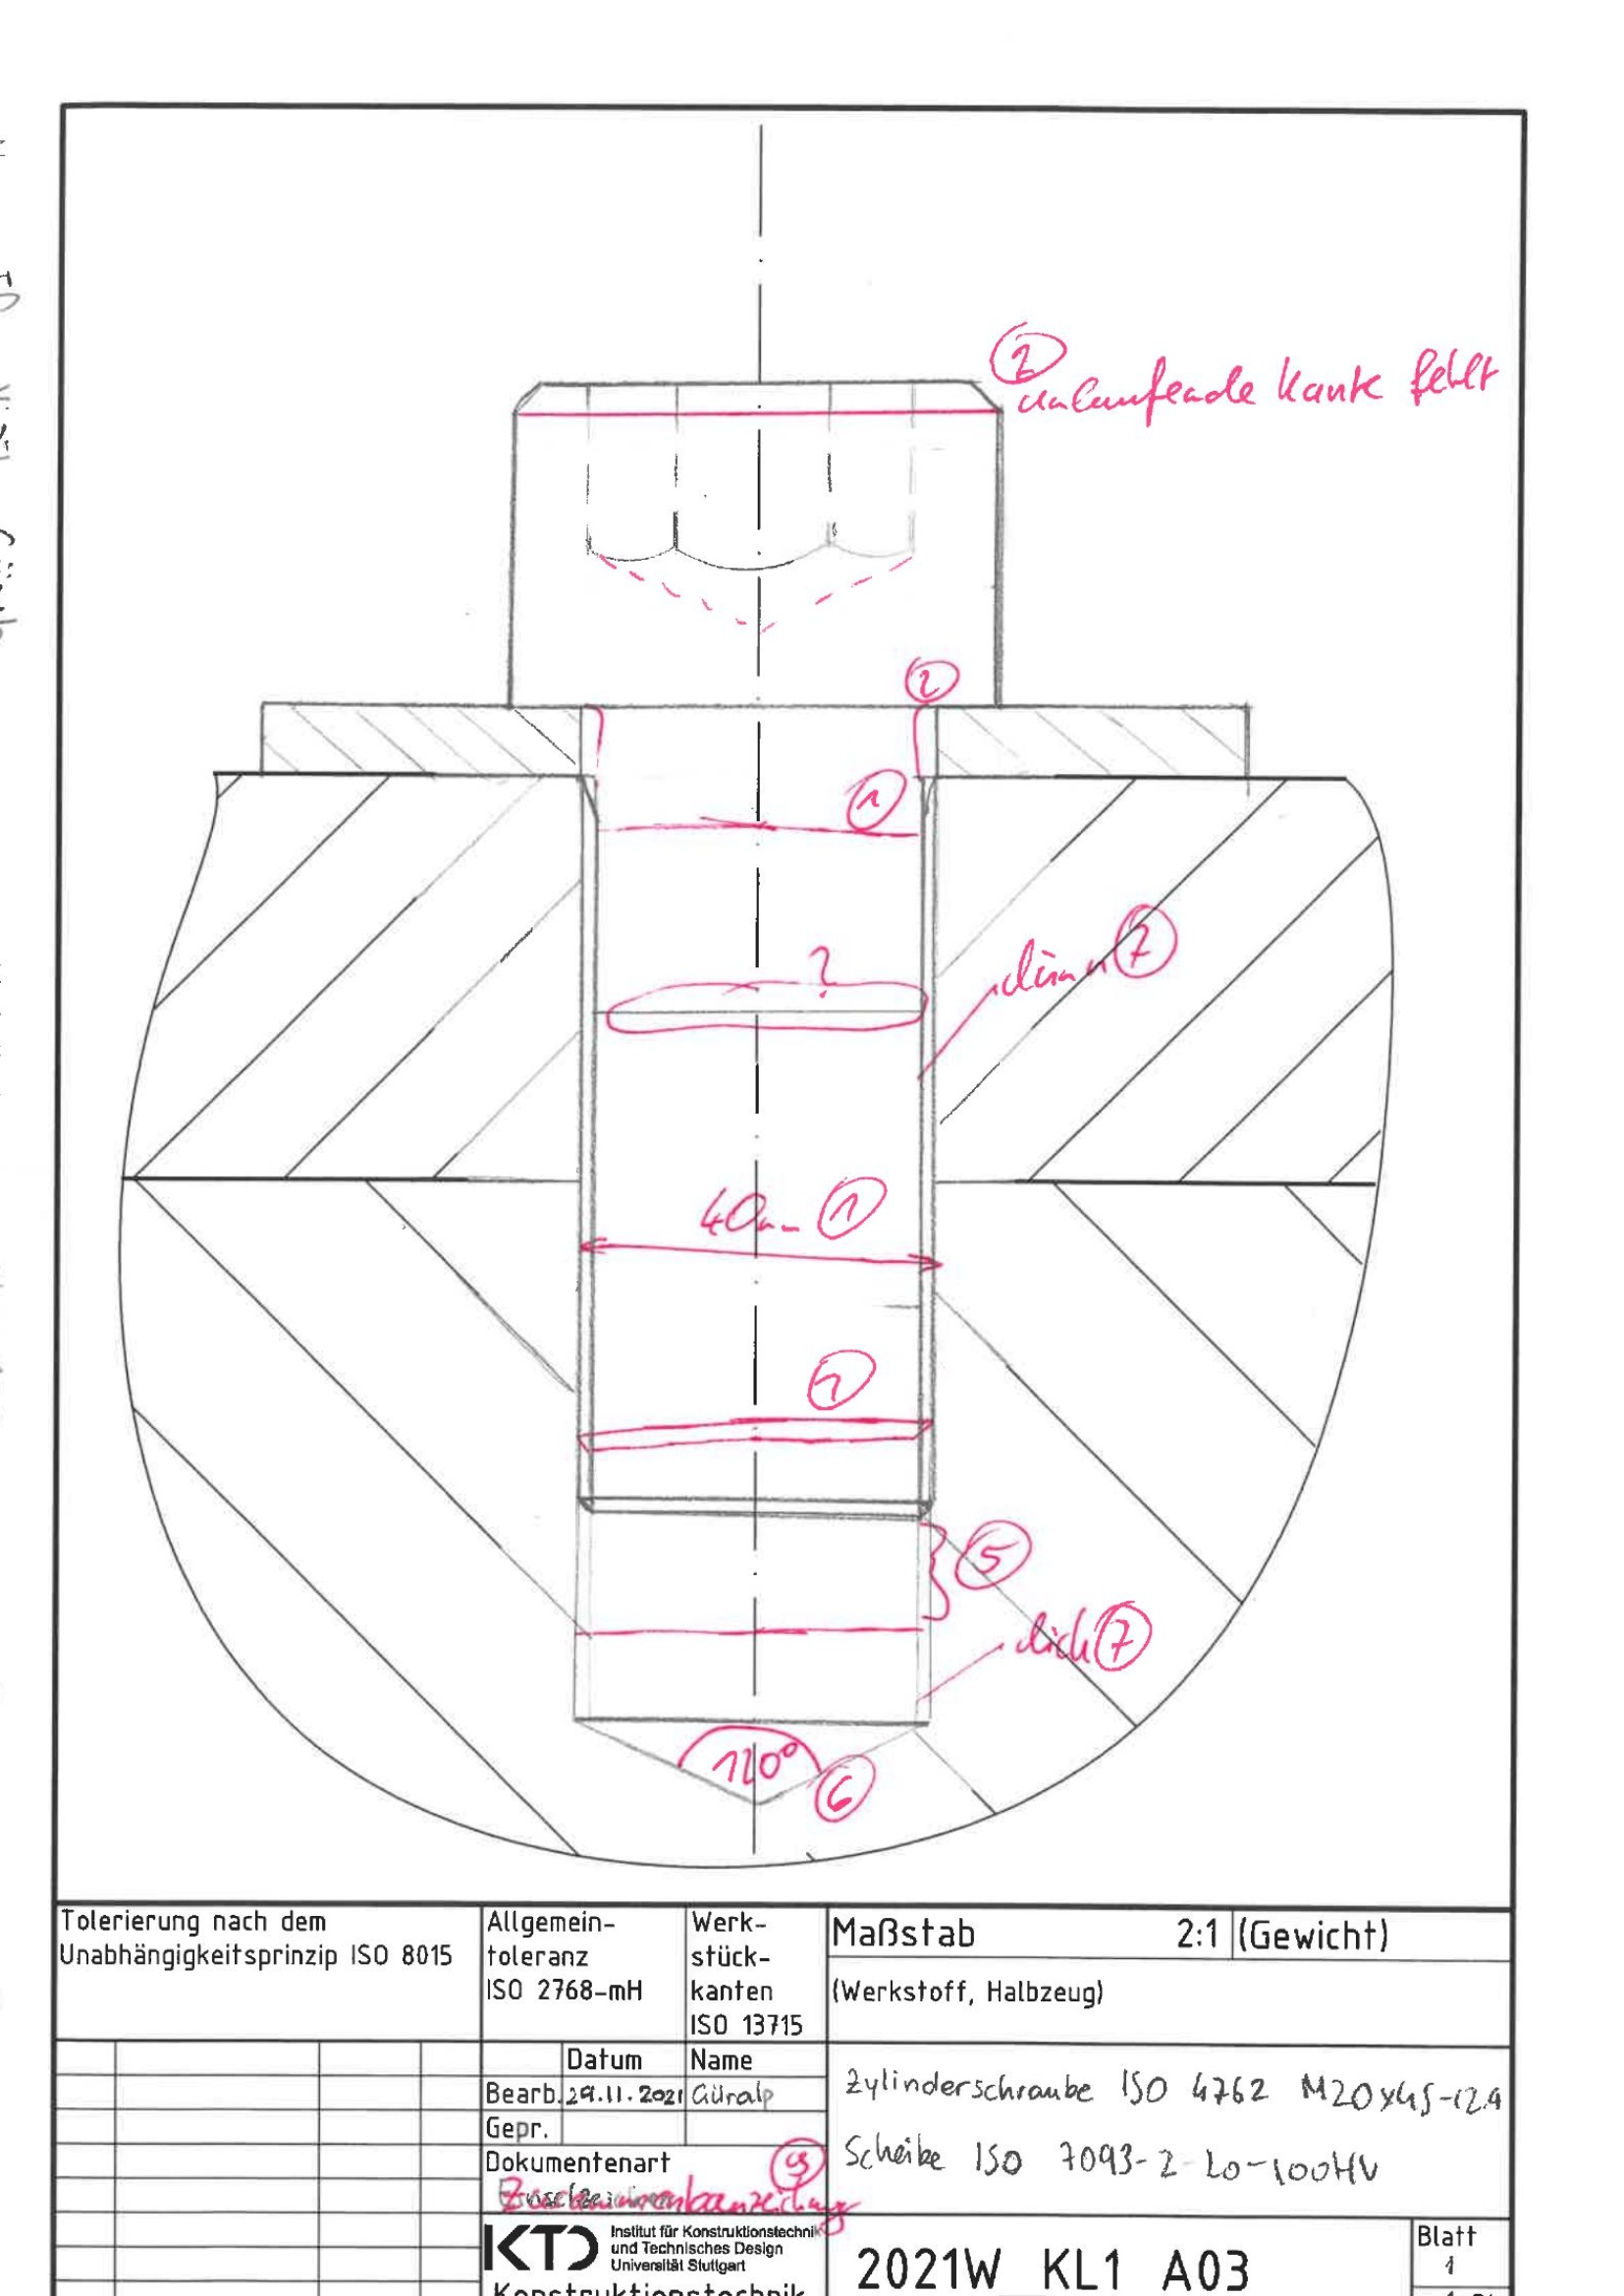 ② umlaufende Kante fehlt
②
①
?
dünn ⑦
40mm ①
①
⑤
dick ⑦
120° ⑥
Tolerierung nach dem
Unabhängigkeitsprinzip ISO 8015
Allgemein-
toleranz
ISO 2768-mH
Werk-
stück-
kanten
ISO 13715
Maßstab 2:1 (Gewicht)
(Werkstoff, Halbzeug)
Datum Name
Bearb. 29.11.2021 Güralp
Gepr.
Zylinderschraube ISO 4762 M20x45-12.9
Scheibe ISO 7093-2-20-100HV
Dokumentenart
Zusammenbauzeichnung
KTD
Institut für Konstruktionstechnik
und Technisches Design
Universität Stuttgart
Konstruktionstechnik
2021W KL1 A03
Blatt
1